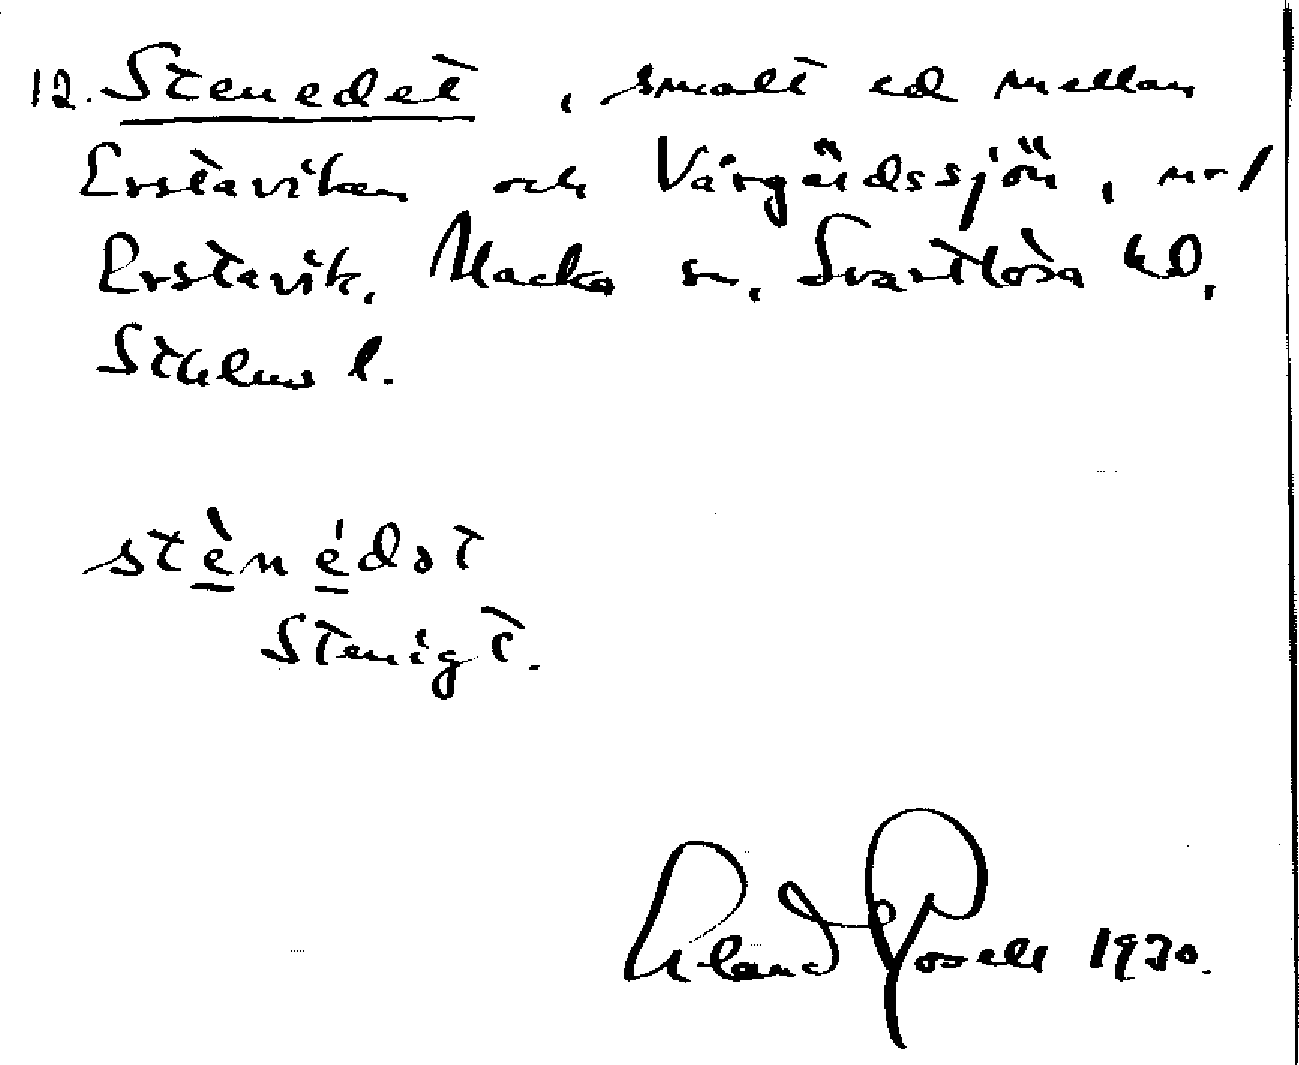 12. Stenedet, smalt ed mellan
Erstaviken och Vårgärdssjön,
Erstavik, Nacka sn, Svartlösa hd,
Sthlms l.
stènédət
Stenigt.
1930.